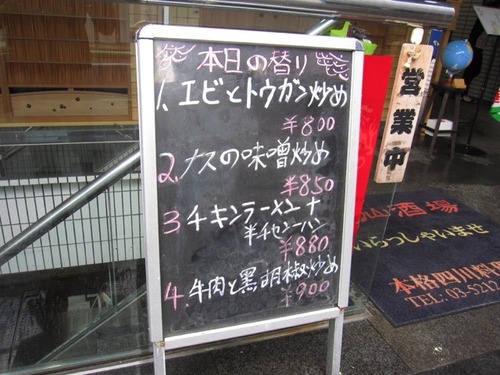 本日の替り
1. エビとトウガン炒め
¥800
2. ナスの味噌炒め
¥850
3 チキンラーメン
半チャーハン
¥880
4. 牛肉と黒胡椒炒め
¥900
営業中
山酒場
いらっしゃいませ
本格四川
TEL. 03-5212